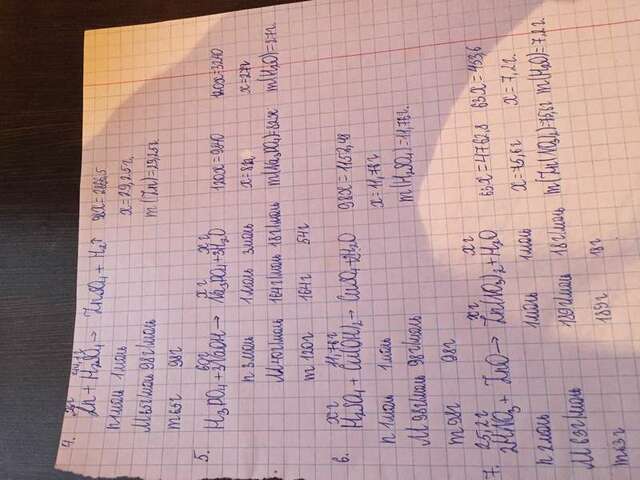 4. xг 44,1г
Zn + H₂SO₄ → ZnSO₄ + H₂↑ 98x = 2866,5
n 1моль 1моль x = 29,25г.
M 65г/моль 98г/моль m(Zn) = 29,25г
m 65г 98г
5. 60г xг xг
H₃PO₄ + 3NaOH → Na₃PO₄ + 3H₂O 120x = 9840 120x = 3240
n 3моль 1моль 3моль x = 82г x = 27г
M 40г/моль 164г/моль 18г/моль m(Na₃PO₄) = 82г m(H₂O) = 27г.
m 120г 164г 54г
6. xг 11,76г
H₂SO₄ + Cu(OH)₂ → CuSO₄ + 2H₂O 98x = 1152,48
n 1моль 1моль x = 11,76г
M 98г/моль 98г/моль m(H₂SO₄) = 11,76г.
m 98г 98г
7. 25,2г xг xг
2HNO₃ + ZnO → Zn(NO₃)₂ + H₂O 63x = 4762,8 63x = 453,6
n 2моль 1моль 1моль x = 75,6г x = 7,2г.
M 63г/моль 189г/моль 18г/моль m(Zn(NO₃)₂) = 75,6г m(H₂O) = 7,2г.
m 63г 189г 18г